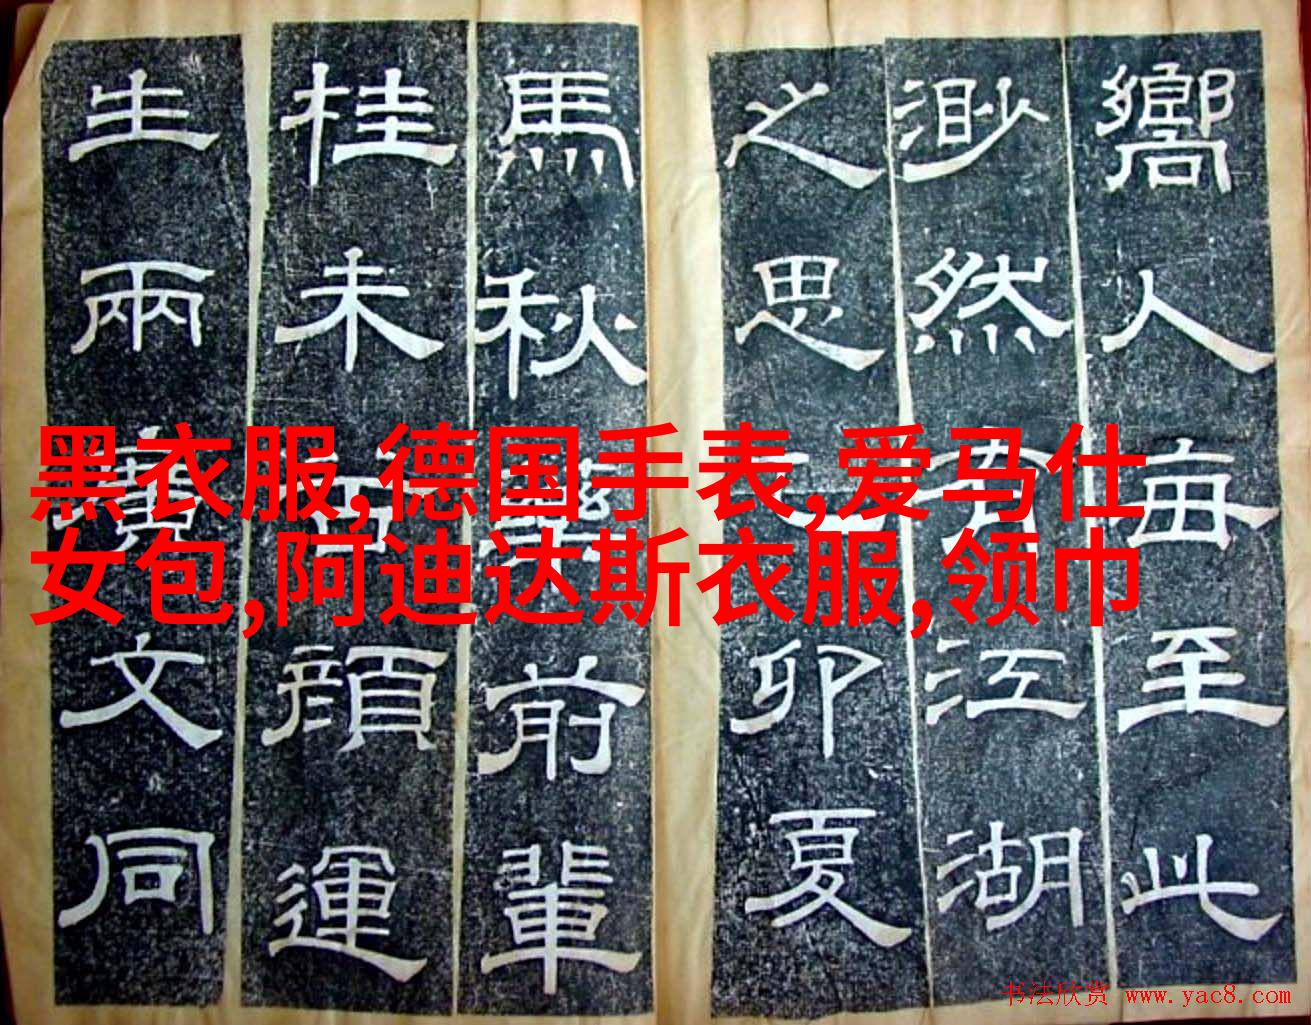 嚮人每至此
渺然有江湖
之思丁卯夏
馬秋藥前輩
桂未谷顏運
生兩廣文同
黑衣服,德国手表,爱马仕
女包,阿迪达斯衣服,领巾
书法欣赏 www.yac8.com